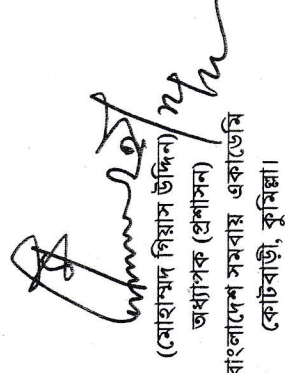 (মোহাম্মদ গিয়াস উদ্দিন)
অধ্যাপক (প্রশাসন)
বাংলাদেশ সমবায় একাডেমি
কোটবাড়ী, কুমিল্লা।